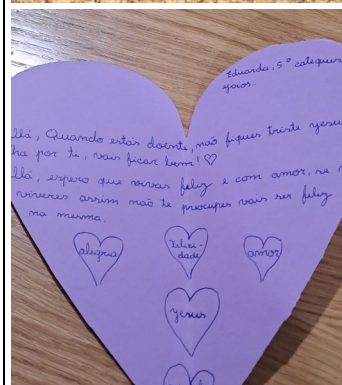 Eduarda, 5º catequis
goios.
Olá, Quando estás doente, não fiques triste yesu
ha por te, vais ficar bem! ♡
Olá, espero que vivas feliz e com amor, se n
viveres assim não te preocupes vais ser feliz
na mesma.
alegria
Felici-
dade
amor
yesus